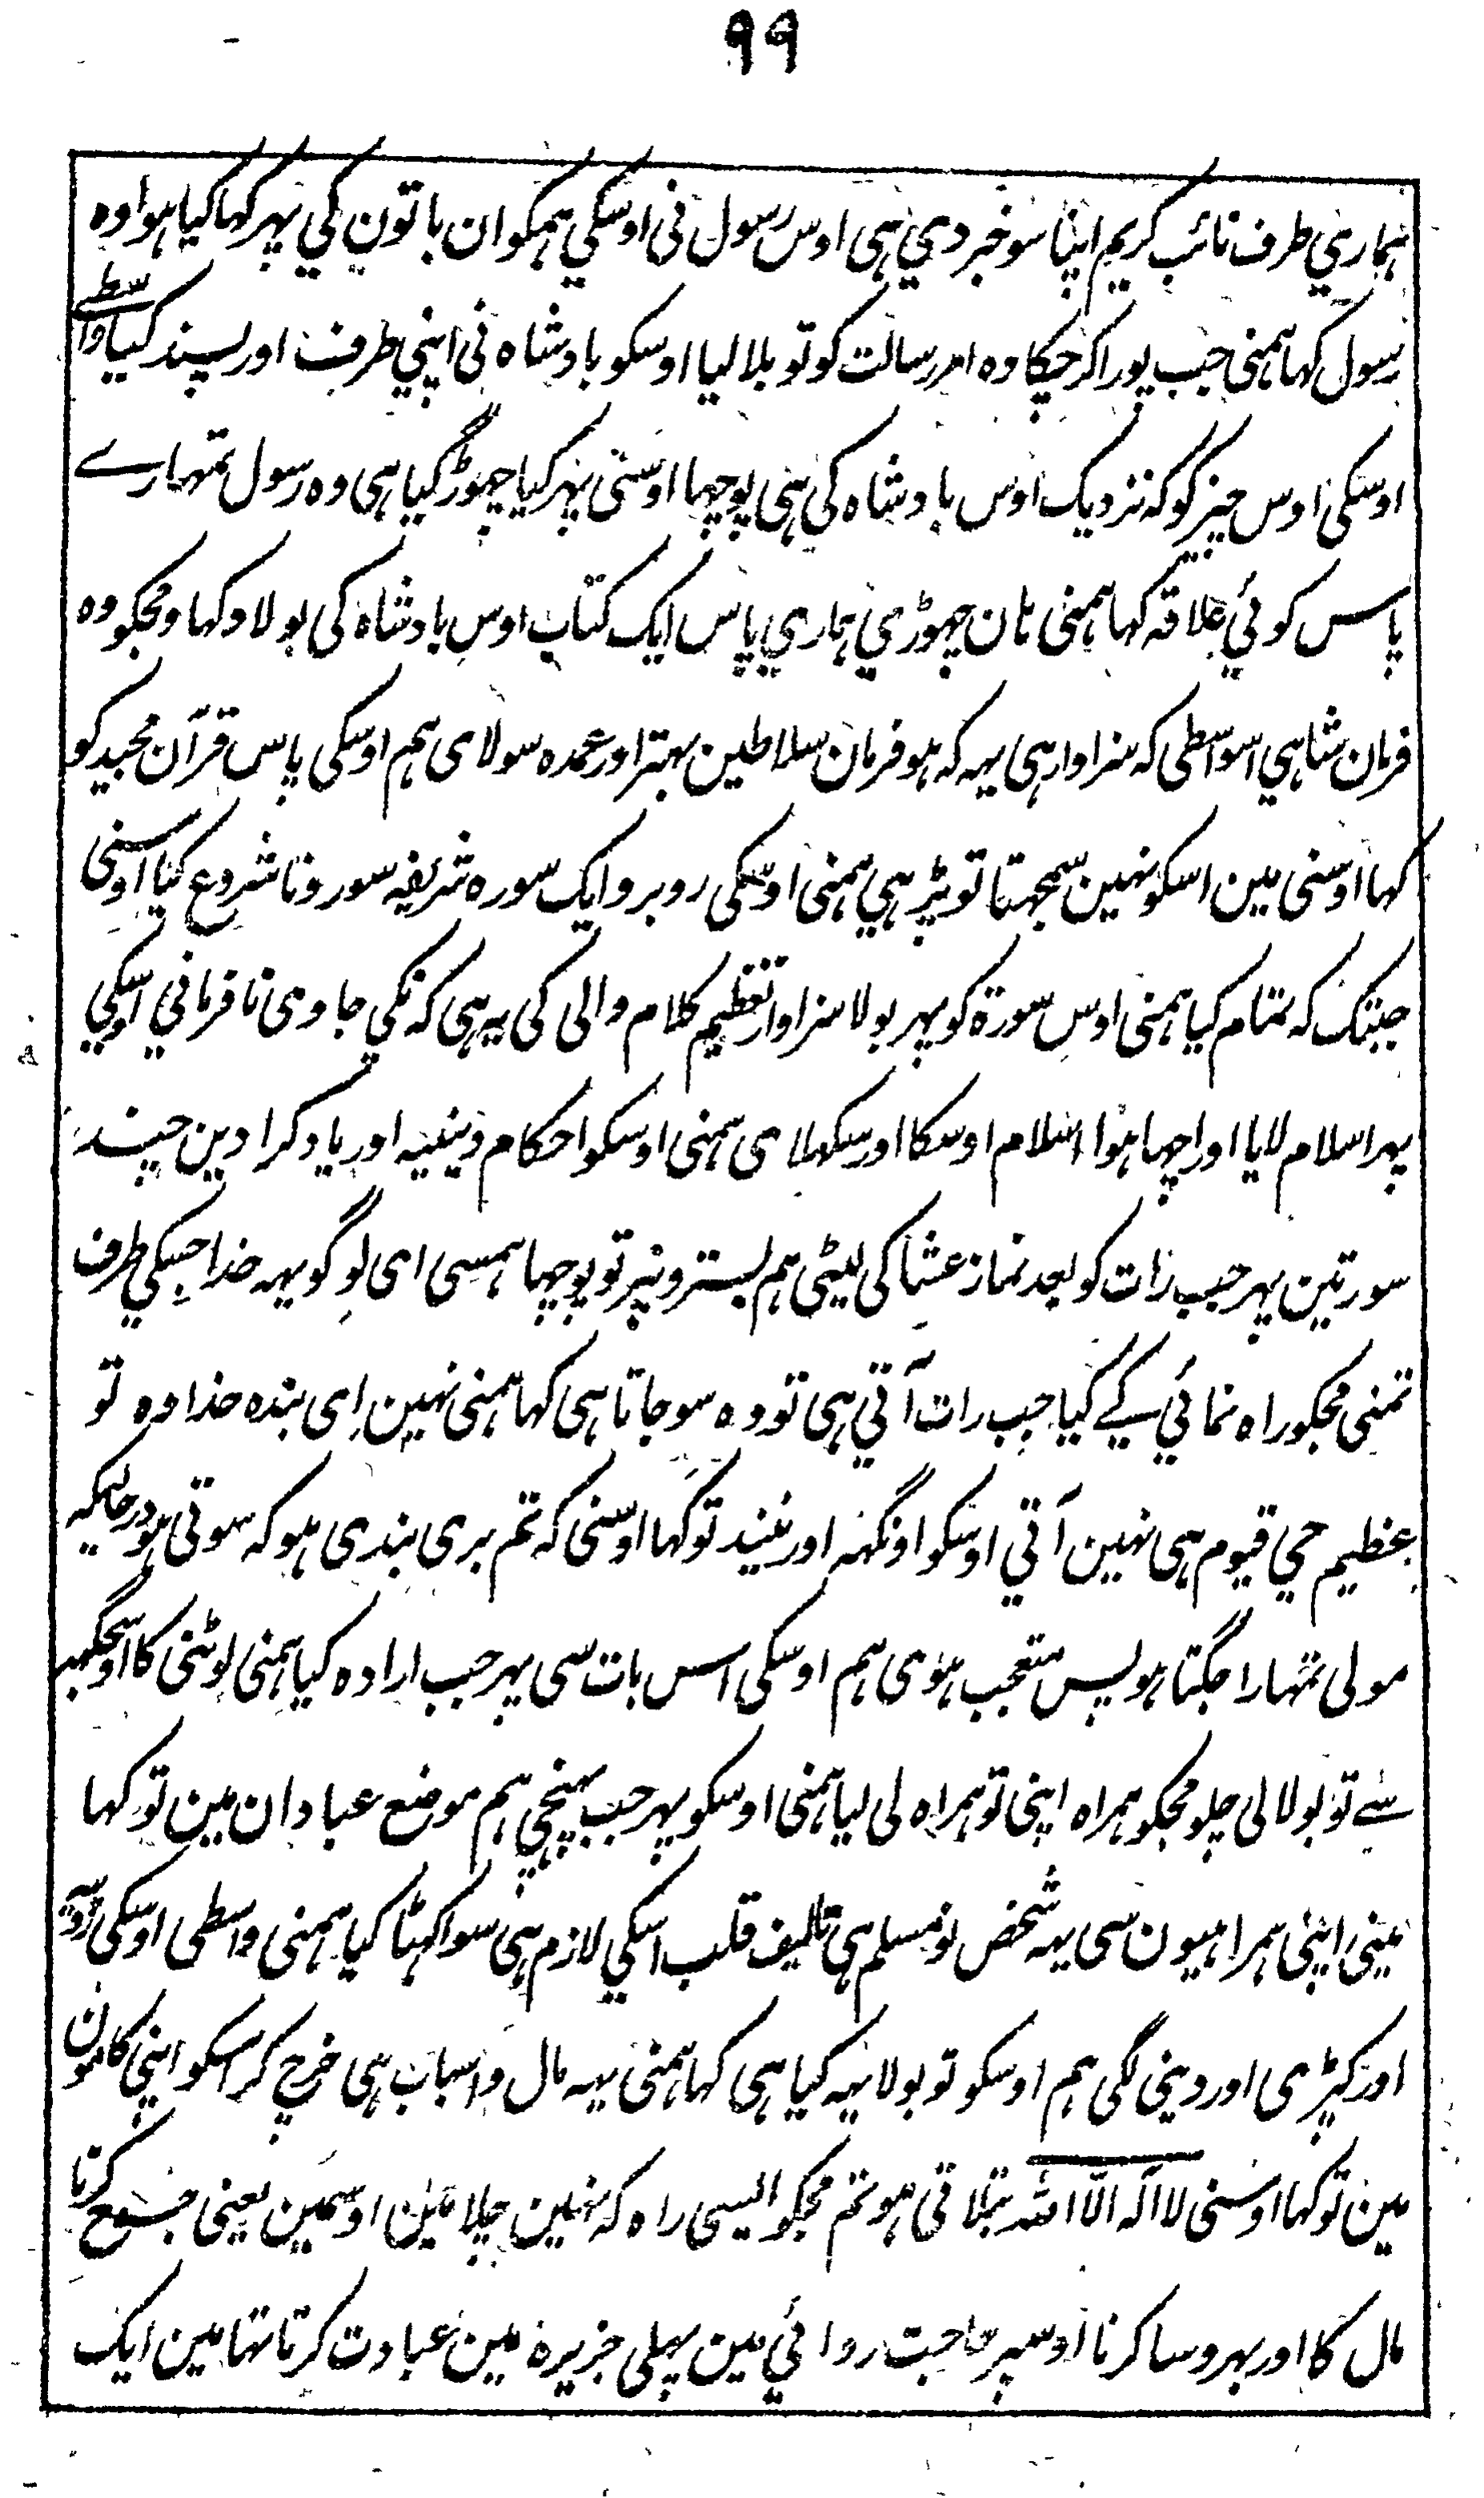 ۹۹
ہماري طرف نائب کریم اپنا سو خبر دي ہی اوس رسول نی اوسکي ہمکو ان باتون کي پہر کہا کیا ہوا وہ
رسول کہا ہمنی جب پورا کر چکا وہ امر رسالت کو تو بلا لیا اوسکو بادشاہ نی اپني طرف اور پسند کیا واسطے
اوسکی اوس چیز کو کہ نزدیک اوس بادشاہ کي ہی پوچہا اوسنی پہر کیا چہوڑ گیا ہی وہ رسول تمہارے
پاس کوئي علاقہ کہا ہمنی ہان چہوڑي ہماري پاس ایک کتاب اوس بادشاہ کی بولا دکہاو مجکو وہ
فرمان شاہي اسواسطی کہ سزاوار ہی یہہ کہ ہو فرمان سلاطین بہتر اور عمدہ سو لای ہم اوسکی پاس قرآن مجید کو
کہا اوسنی مین اسکو نہین سمجہتا تو پڑہي ہمنی اوسکی روبرو ایک سورہ شریفہ سو رونا شروع کیا اوسنی
جبتک کہ تمام کیا ہمنی اوس سورة کو پہر بولا سزاوار تعظیم کلام والی کی یہ ہی کہ نکي جاوی نافرماني اوسکي
پہر اسلام لایا اور اچہا ہوا اسلام اوسکا اور سکہلای ہمنی اوسکو احکام دینیہ اور یاد کرا دین چند
سورتین پہر جب رات کو بعد نماز عشا کی لیٹی ہم بسترونپر تو پوچہا ہمسی ای لوگو یہہ خدا جسکي طرف
تمنی مجکو راہ نمائي کے کیا جب رات آتي ہی تو وہ سو جاتا ہی کہا ہمنی نہین ای بندہ خدا وہ تو
عظیم حي قیوم ہی نہین آتي اوسکو اونگہہ اور نیند تو کہا اوسنی کہ تم بری بندی ہو کہ سوتی ہو درحالیکہ
مولی تمہارا جگتا ہو پس متعجب ہوی ہم اوسکی اس بات سی پہر جب ارادہ کیا ہمنی لوٹنی کا اوسجگہہ
سے تو بولا لی چلو مجکو ہمراہ اپنی تو ہمراہ لی لیا ہمنی اوسکو پہر جب پہنچي ہم موضع عبادان مین تو کہا
مینی اپنی ہمراہیون سی یہہ شخص نومسلم ہی تالیف قلب اسکي لازم ہی سو اکہٹا کیا ہمنی واسطی اوسکی
اور کپڑی اور دینی لگی ہم اوسکو تو بولا یہہ کیا ہی کہا ہمنی یہہ مال و اسباب ہی خرچ کر اسکو اپنی کامون
مین تو کہا اوسنی لا آلہ الا اللہ بتلاتی ہو تم مجکو ایسی راہ کہ نہین چلا مین اوسمین یعنی جمع کرنا
مال کا اور بہروسا کرنا اوسپر حاجت روائي مین پہلی جزیرہ مین عبادت کرتا تہا مین ایک